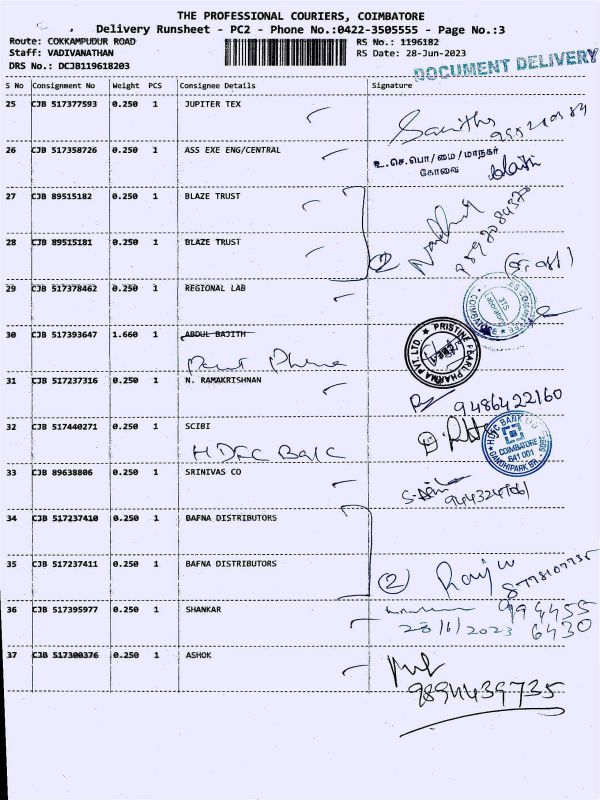 THE PROFESSIONAL COURIERS, COIMBATORE
Delivery Runsheet - PC2 - Phone No.:0422-3505555 - Page No.:3
Route: COKKAMPUDUR ROAD RS No.: 1196182
Staff: VADIVANATHAN RS Date: 28-Jun-2023
DRS No.: DCJB119618203
DOCUMENT DELIVERY
S No Consignment No Weight PCS Consignee Details Signature
25 CJB 517377593 0.250 1 JUPITER TEX
26 CJB 517358726 0.250 1 ASS EXE ENG/CENTRAL
உ.செ.பொ/மை/மாநகர்
கோவை
27 CJB 89515182 0.250 1 BLAZE TRUST
28 CJB 89515181 0.250 1 BLAZE TRUST
②
29 CJB 517378462 0.250 1 REGIONAL LAB
30 CJB 517393647 1.660 1 ABDUL BAJITH
PRISTINE PEARL PHARMA PVT. LTD
31 CJB 517237316 0.250 1 N. RAMAKRISHNAN
9486422160
32 CJB 517440271 0.250 1 SCIBI
HDFC Bank
HDFC BANK LTD
COIMBATORE
641 001
GANDHIPARK BR
33 CJB 89638806 0.250 1 SRINIVAS CO
34 CJB 517237410 0.250 1 BAFNA DISTRIBUTORS
35 CJB 517237411 0.250 1 BAFNA DISTRIBUTORS
② 8778107735
36 CJB 517395977 0.250 1 SHANKAR
994455
28/6/2023 6430
37 CJB 517300376 0.250 1 ASHOK
9894439735